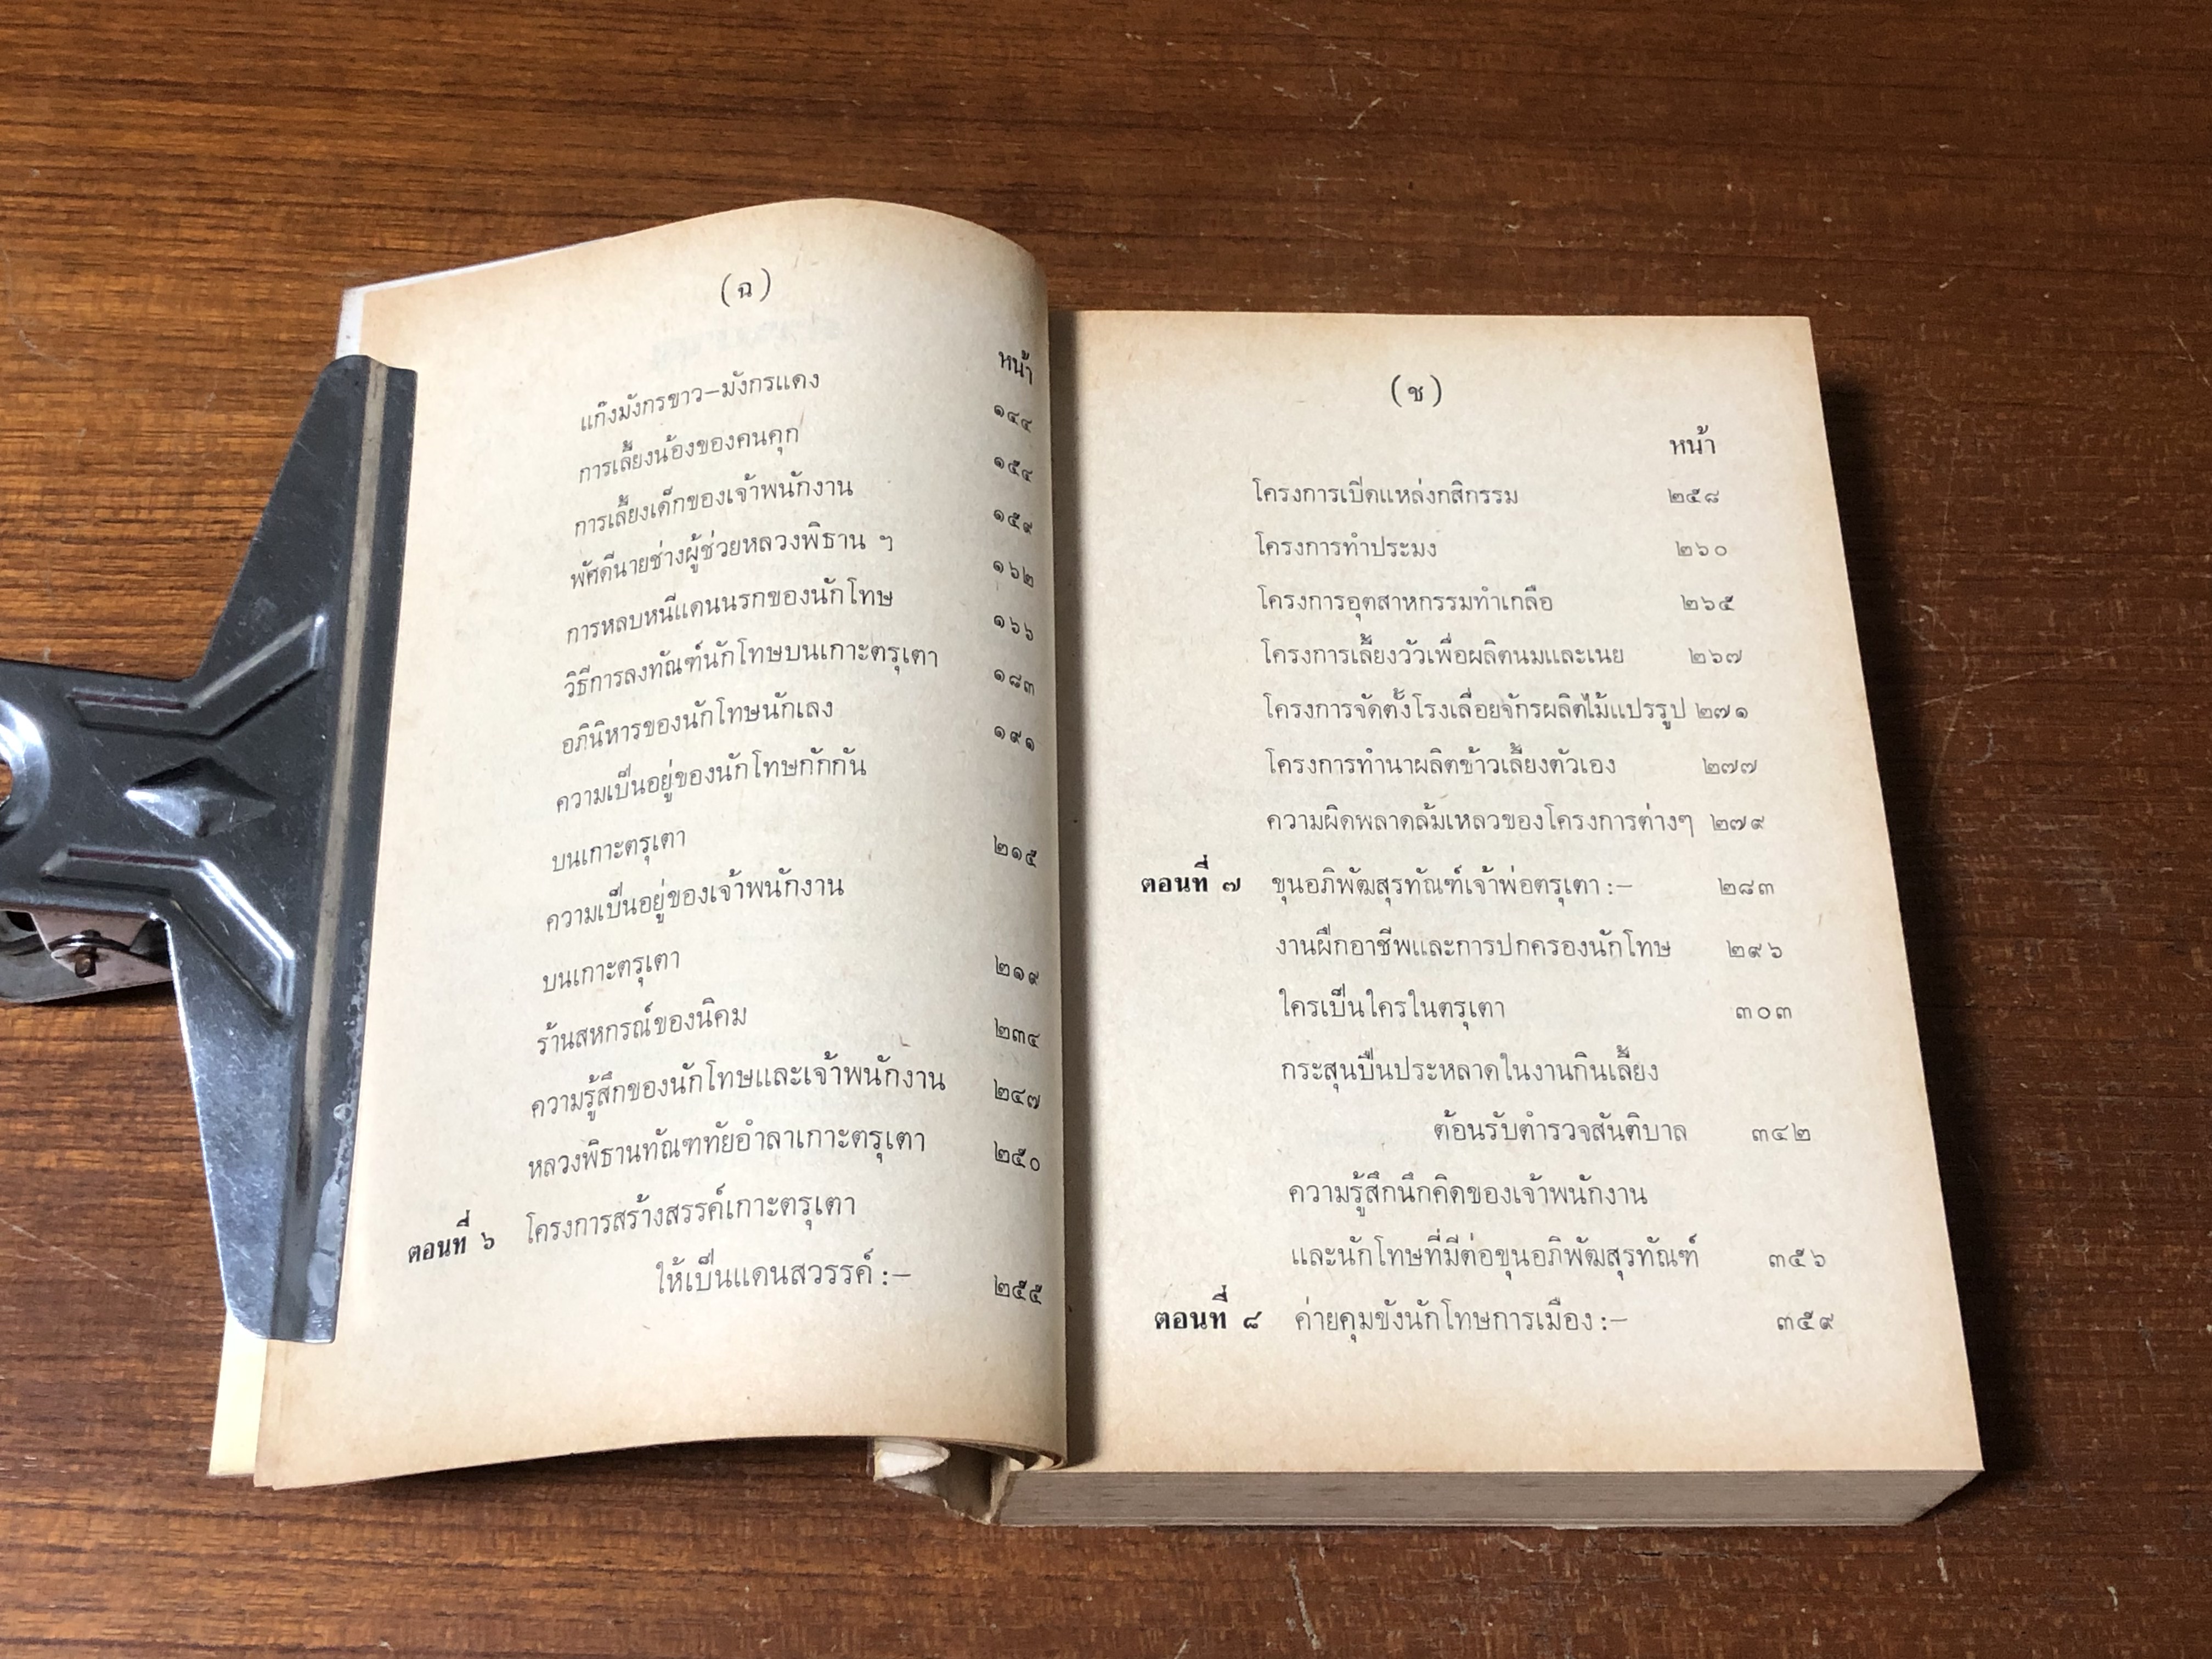 (ฉ)
หน้า
แก๊งมังกรขาว–มังกรแดง ๑๔๔
การเลี้ยงน้องของคนคุก ๑๕๔
การเลี้ยงเด็กของเจ้าพนักงาน ๑๕๙
พัศดีนายช่างผู้ช่วยหลวงพิธาน ฯ ๑๖๒
การหลบหนีแดนนรกของนักโทษ ๑๖๖
วิธีการลงทัณฑ์นักโทษบนเกาะตรุเตา ๑๘๓
อภินิหารของนักโทษนักเลง ๑๙๑
ความเป็นอยู่ของนักโทษกักกัน
บนเกาะตรุเตา ๒๑๕
ความเป็นอยู่ของเจ้าพนักงาน
บนเกาะตรุเตา ๒๑๙
ร้านสหกรณ์ของนิคม ๒๓๔
ความรู้สึกของนักโทษและเจ้าพนักงาน ๒๔๗
หลวงพิธานทัณฑทัยอำลาเกาะตรุเตา ๒๕๐
ตอนที่ ๖ โครงการสร้างสรรค์เกาะตรุเตา
ให้เป็นแดนสวรรค์ :– ๒๕๕
(ช)
หน้า
โครงการเปิดแหล่งกสิกรรม ๒๕๘
โครงการทำประมง ๒๖๐
โครงการอุตสาหกรรมทำเกลือ ๒๖๕
โครงการเลี้ยงวัวเพื่อผลิตนมและเนย ๒๖๗
โครงการจัดตั้งโรงเลื่อยจักรผลิตไม้แปรรูป ๒๗๑
โครงการทำนาผลิตข้าวเลี้ยงตัวเอง ๒๗๗
ความผิดพลาดล้มเหลวของโครงการต่างๆ ๒๗๙
ตอนที่ ๗ ขุนอภิพัฒสุรทัณฑ์เจ้าพ่อตรุเตา :– ๒๘๓
งานฝึกอาชีพและการปกครองนักโทษ ๒๙๖
ใครเป็นใครในตรุเตา ๓๐๓
กระสุนปืนประหลาดในงานกินเลี้ยง
ต้อนรับตำรวจสันติบาล ๓๔๒
ความรู้สึกนึกคิดของเจ้าพนักงาน
และนักโทษที่มีต่อขุนอภิพัฒสุรทัณฑ์ ๓๕๖
ตอนที่ ๘ ค่ายคุมขังนักโทษการเมือง :– ๓๕๙